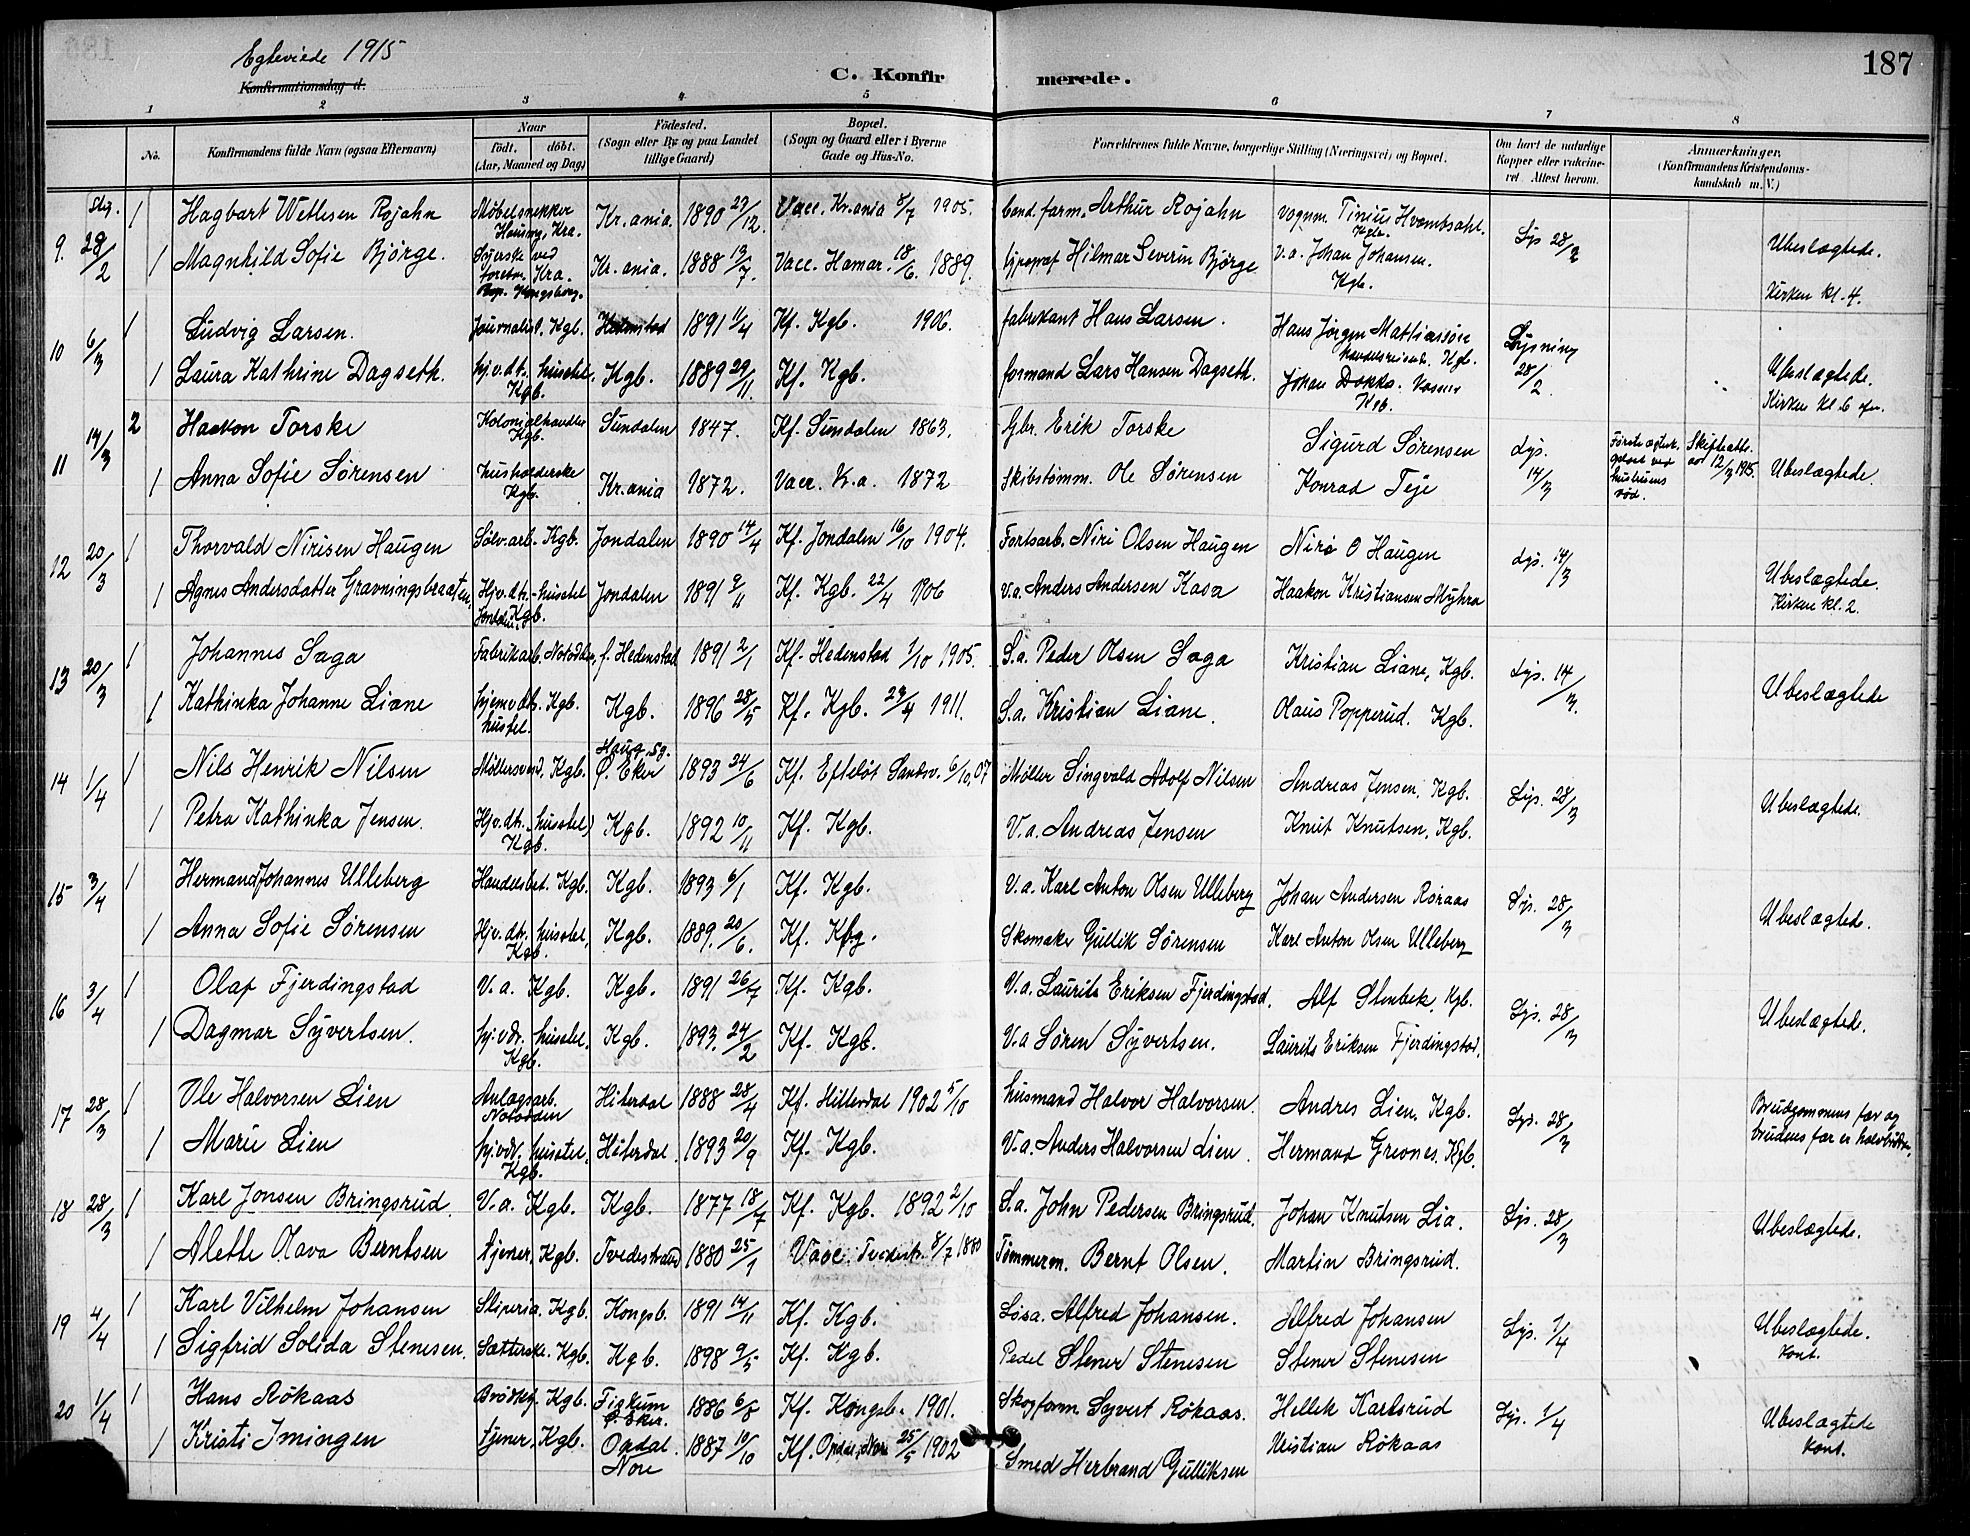 Egteviede 1915
Konfirmationsdag d.
C. Konfirmerede.
187
1 2 3 4 5 6 7 8
No.
Konfirmandens fulde Navn (ogsaa Efternavn)
Naar
født. døbt.
(Aar, Maaned og Dag)
Fødested.
(Sogn eller By og paa Landet
tillige Gaard)
Bopæl.
(Sogn og Gaard eller i Byerne
Gade og Hus-No.
Forældrenes fulde Navne, borgerlige Stilling (Næringsvei) og Bopæl.
Om havt de naturlige
Kopper eller vakcine-
ret. Attest herom.
Anmærkninger.
(Konfirmandens Kristendoms-
kundskab m. V.)
9. 28/2 1 Hagbart Wetlesen Rojahn Møbelsnekker Kra. Kr.ania 1890 27/12. Vacc. Kr.ania 8/7 1905. Cand. farm. Arthur Rojahn Vognm. Tinius Hvambsahl. Kgb. Lys 28/2
1 Magnhild Sofie Bjørge. Syerske ved Kra. Kr.ania. 1888 13/7. Vacc. Hamar. 18/6. 1889. typograf Hilmar Severin Bjørge V.a. Johan Johansen. Kgb. Ubeslægtede.
Kirken kl. 4.
10 6/3 1 Ludvig Larsen. Journalist. Kgb. 1891 11/4 Kf. Kgb. 1906. fabrikant Hans Larsen. Hans Jørgen Mathiassøn handelsreisend. Kgb. Lysning 28/2.
1 Laura Kathrine Dagseth. hj.v.dt. husstel, Kgb. Kgb. 1889 29/11. Kf. Kgb. formand Lars Hansen Dagseth. Johan Dokka. Kgb. Ubeslægtede.
Kirken kl. 6
11 14/3 2 Haakon Torske Kolonialhandler Kgb. Sundalen 1847. Kf. Sundalen 1863. Gbr. Erik Torske Sigurd Sørensen Lys. 14/3 Første egtesk. hustruens død. Skifteatt. 12/3 1915.
1 Anna Sofie Sørensen husholderske Kgb. Kr.ania 1872. Vacc. K.a. 1872 Skibstømm. Ole Sørensen Konrad Teje Ubeslægtede.
12 20/3 1 Thorvald Nirisen Haugen Sølvarb. Kgb. Jondalen 1890 14/4 Kf. Jondalen 16/10 1904. Fortsarb. Niri Olsen Haugen Niri O Haugen Lys. 14/3
1 Agnes Andersdatter Gravningsbraaten. Hj.v.dtr. husstel Kgb. Jondalen 1891 9/11 Kf. Kgb. 22/4 1906 V.a. Anders Andersen Kasa Haakon Kristiansen Myhra Ubeslægtede.
Kirken kl. 2.
13 20/3 1 Johannes Saga Fabrikarb. Notodden, f. Hedenstad 1891 2/1 Kf. Hedenstad 1/10 1905. S.a. Peder Olsen Saga Kristian Liane, Kgb. Lys. 14/3.
1 Kathinka Johanne Liane hjemv.dt. Kgb. husstel. Kgb. 1896 28/5 Kf. Kgb. 23/4 1911. S.a. Kristian Liane. Olaus Popperud. Kgb. Ubeslægtede
14 1/4 1 Nils Henrik Nilsen Møllersvend. Kgb. Haug sg. Ø. Eker 1893 24/6 Kf. Efteløt Sandsv. 6/10, 07 Møller Singvald Adolf Nilsen Andreas Jensen, Kgb. Lys. 28/3
1 Petra Kathinka Jensen. Hj.v.dt. husstel Kgb. Kgb. 1892 10/11 Kf. Kgb. V.a. Andreas Jensen Knut Knutsen, Kgb. Ubeslægtede.
15 3/4 1 Hermand Johannes Ulleberg Handelsbet. Kgb. Kgb. 1893 6/1 Kf. Kgb. V.a. Karl Anton Olsen Ulleberg Johan Andersen Roraas Lys. 28/3
1 Anna Sofie Sørensen Hj.v.dt. husstel, Kgb. Kgb. 1889. 20/6. Kf. Kbg. Skomaker Gullik Sørensen Karl Anton Olsen Ulleberg Ubeslægtede.
16 3/4 1 Olaf Fjerdingstad V.a. Kgb. Kgb. 1891 26/7 Kf. Kgb. V.a. Laurits Eriksen Fjerdingstad. Alf Stenbek, Kgb. Lys. 28/3
1 Dagmar Syvertsen. hj.v.dtr. husstel. Kgb. Kgb. 1893. 24/2 Kf. Kgb. V.a Søren Syvertsen. Laurits Eriksen Fjerdingstad. Ubeslægtede.
17 28/3 1 Ole Halvorsen Lien Anlægsarb. Notodden Hiterdal 1888 28/4 Kf. Hitterdal 1902 5/10 husmand Halvor Halvorsen. Andres Lien, Kgb. Lys. 28/3
1 Marie Lien hj.v.dtr. husstel. Kgb. Hiterdal. 1893 20/9 Kf. Kgb. V.a. Anders Halvorsen Lien. Hermand Grevnes. Kgb. Brudgommens far og
brudens far er halvbrødre,
18 28/3 1 Karl Jonsen Bringsrud. V.a. Kgb. Kgb. 1877 18/7 Kf. Kgb. 1892 2/10 S.a. John Pedersen Bringsrud. Johan Knutsen Lia. Lys. 28/3
1 Alette Olava Berntsen tjener, Kgb. Tvedestrand 1880 25/1 Vacc. Tvedestr. 8/7 1880 Tømmerm. Bernt Olsen. Martin Bringsrud. Ubeslægtede.
19 4/4 1 Karl Vilhelm Johansen Sliperia. Kgb. Kongsb. 1891 14/11 Kf. Kgb. Løsa. Alfred Johansen. Alfred Johansen Lys. 1/4
1 Sigfrid Solida Stenesen. Sætterske. Kgb. Kgb. 1898 9/5 Kf. Kgb. Pedel Stener Stenesen Stener Stenesen Ubeslægtede.
Kont.
20 1/4 1 Hans Røkaas Brødkj. Kgb. Fiskum Ø. Eker. 1886 6/8 Kf. Kongsb. 1901. Skogform. Syvert Røkaas. Hellik Karlsrud Lys. 1/4
1 Kristi Imingen tjener, Kgb. Opdal. Nore 1887 10/10 Kf. Opdal, Nore 25/5 1902 Smed Herbrand Gulliksen Kristian Røkaas Ubeslægtede
Kont.